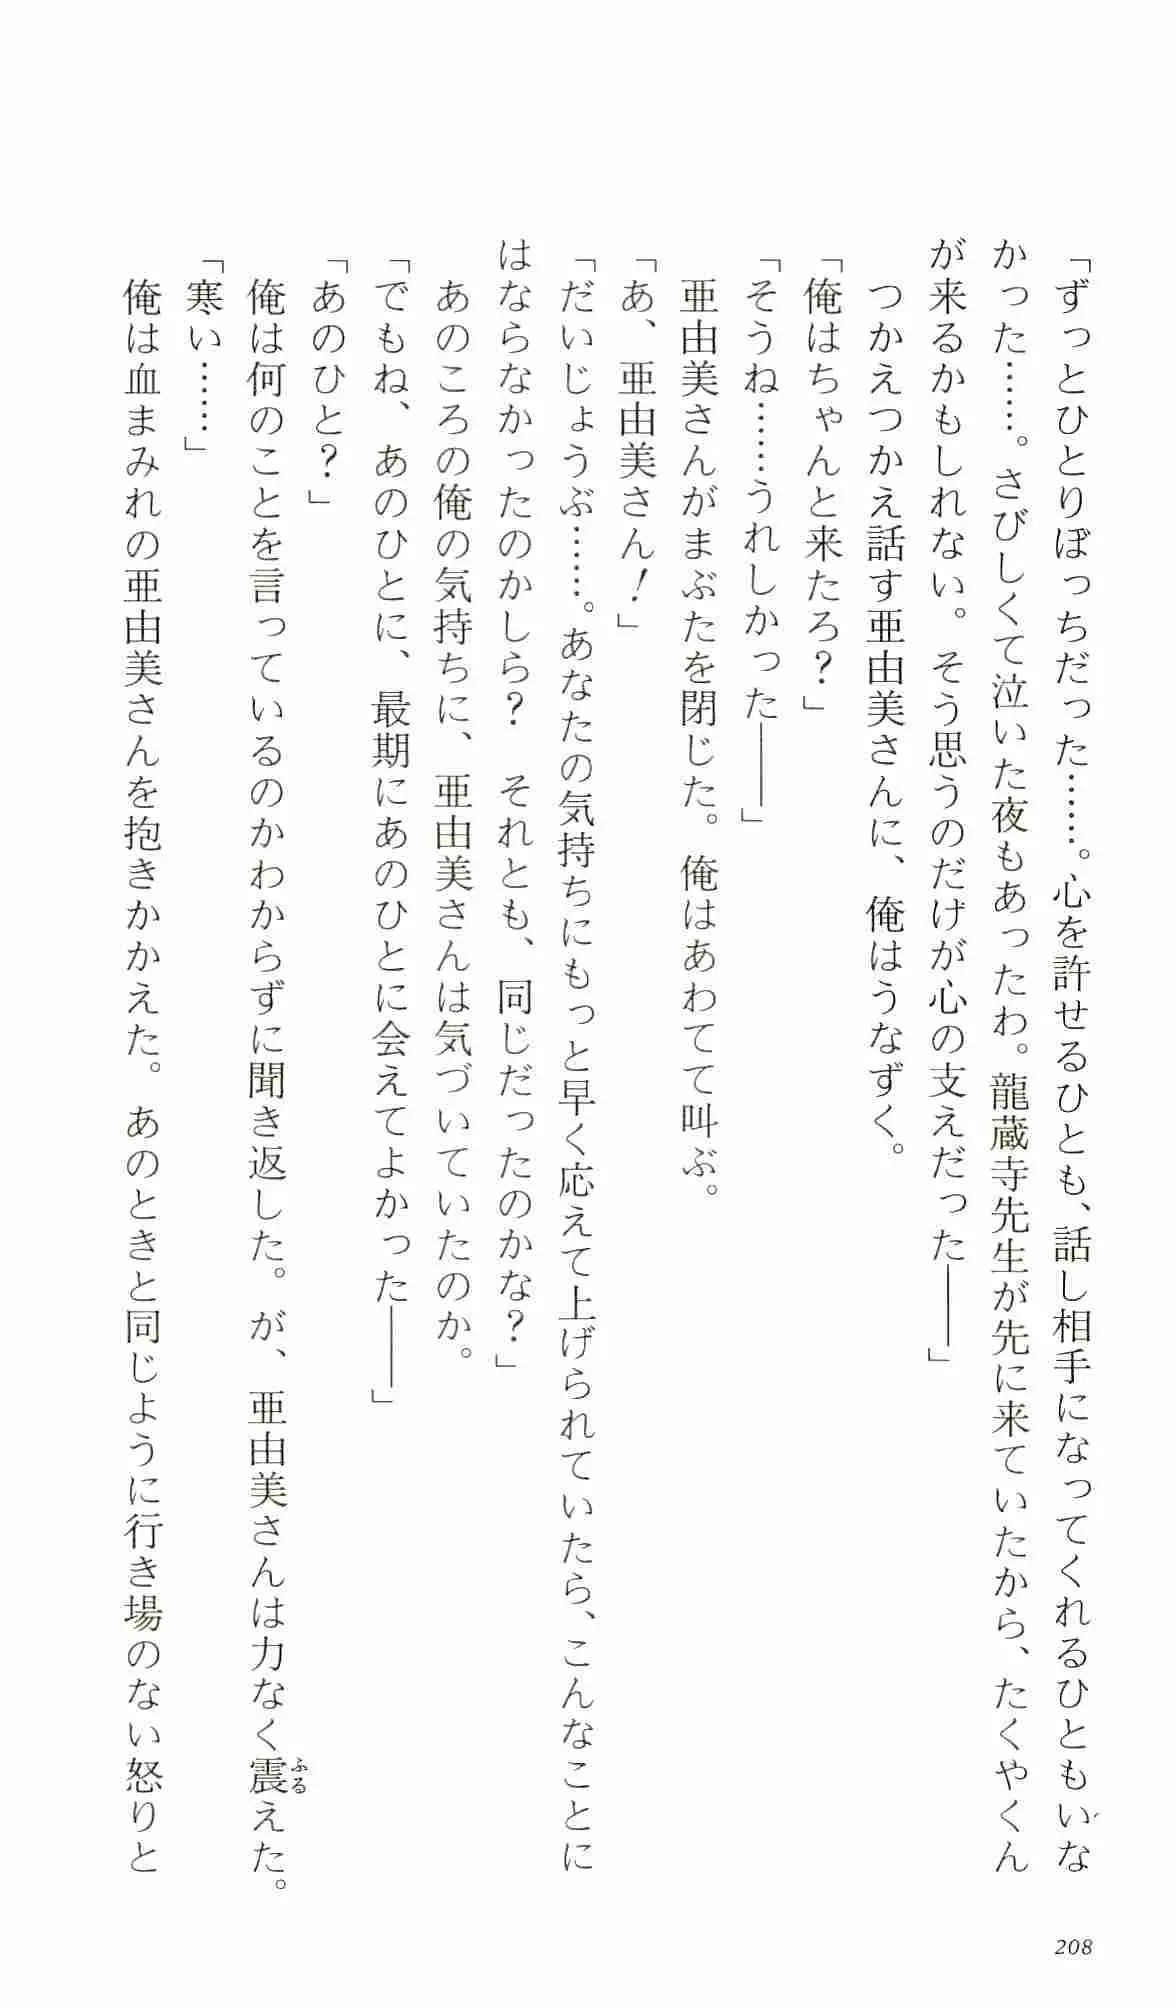 「ずっとひとりぼっちだった……。心を許せるひとも、話し相手になってくれるひともいな
かった……。さびしくて泣いた夜もあったわ。龍蔵寺先生が先に来ていたから、たくやくん
が来るかもしれない。そう思うのだけが心の支えだった――」
つかえつかえ話す亜由美さんに、俺はうなずく。
「俺はちゃんと来たろ？」
「そうね……うれしかった――」
亜由美さんがまぶたを閉じた。俺はあわてて叫ぶ。
「あ、亜由美さん！」
「だいじょうぶ……。あなたの気持ちにもっと早く応えて上げられていたら、こんなことに
はならなかったのかしら？　それとも、同じだったのかな？」
あのころの俺の気持ちに、亜由美さんは気づいていたのか。
「でもね、あのひとに、最期にあのひとに会えてよかった――」
「あのひと？」
俺は何のことを言っているのかわからずに聞き返した。が、亜由美さんは力なく震えた。
ふる
「寒い……」
俺は血まみれの亜由美さんを抱きかかえた。あのときと同じように行き場のない怒りと
208